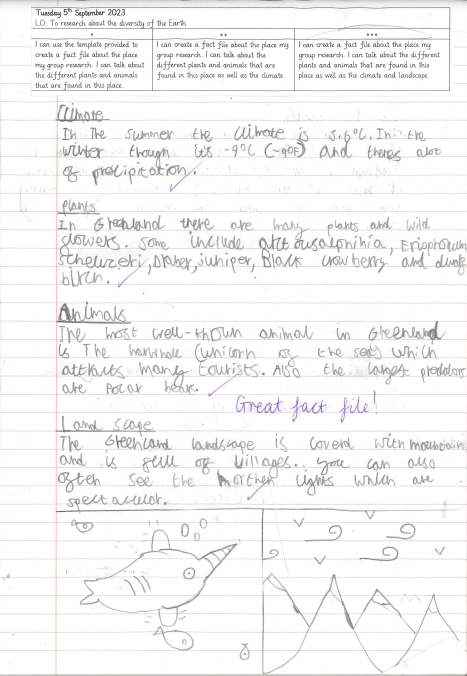 Tuesday 5th September 2023
LO: To research about the diversity of the Earth
*
I can use the template provided to
create a fact file about the place
my group research. I can talk about
the different plants and animals
that are found in this place.
**
I can create a fact file about the place my
group research. I can talk about the
different plants and animals that are
found in this place as well as the climate.
***
I can create a fact file about the place my
group research. I can talk about the different
plants and animals that are found in this
place as well as the climate and landscape.
Climate
In the summer the climate is 5.6°C. In the
winter though its -9°C (-9°F) and theres alot
of precipitation.
plants
In Greenland there are many plants and wild
flowers. some include arctousalpinia, Eriophorum
scheuzeri, Draber, juniper, Black crowberry and dwarf
birch.
Animals
The most well-known animal in Greenland
is The narwhale (unicorn of the sea) which
attracts many tourists. Also the largest predators
are Polar bears.
Great fact file!
Land scape
The Greenland landscape is coverd with mountains
and is full of villages. you can also
often see the Northen lights which are
spectacular.